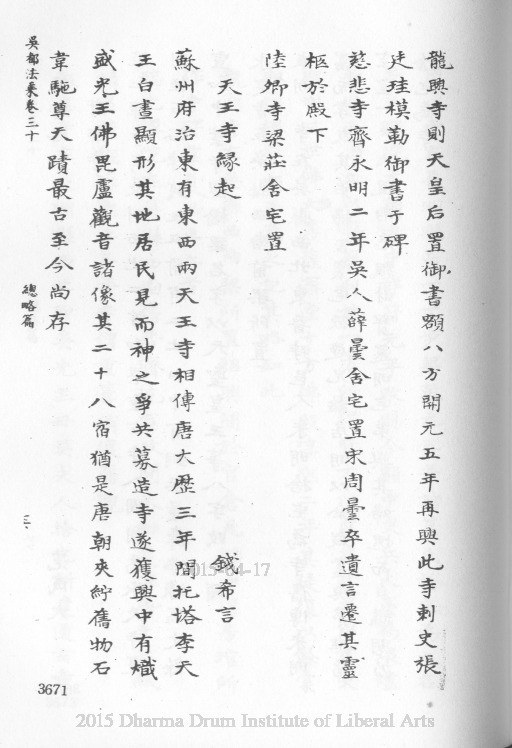 龍興寺則天皇后置御書額八方開元五年再興此寺刺史張
廷珪模勒御書于碑
慈悲寺齊永明二年吳人薛曇舍宅置宋周曇卒遺言遷其靈
柩於殿下
陸卿寺梁莊舍宅置
天王寺緣起
錢希言
蘇州府治東有東西兩天王寺相傳唐大歷三年間托塔李天
王白晝顯形其地居民見而神之爭共募造寺遂獲興中有熾
盛光王佛毘盧觀音諸像其二十八宿猶是唐朝夾紵舊物石
韋馱尊天蹟最古至今尚存
吳都法乘卷三十
總略篇
3671
2015-04-17
2015 Dharma Drum Institute of Liberal Arts